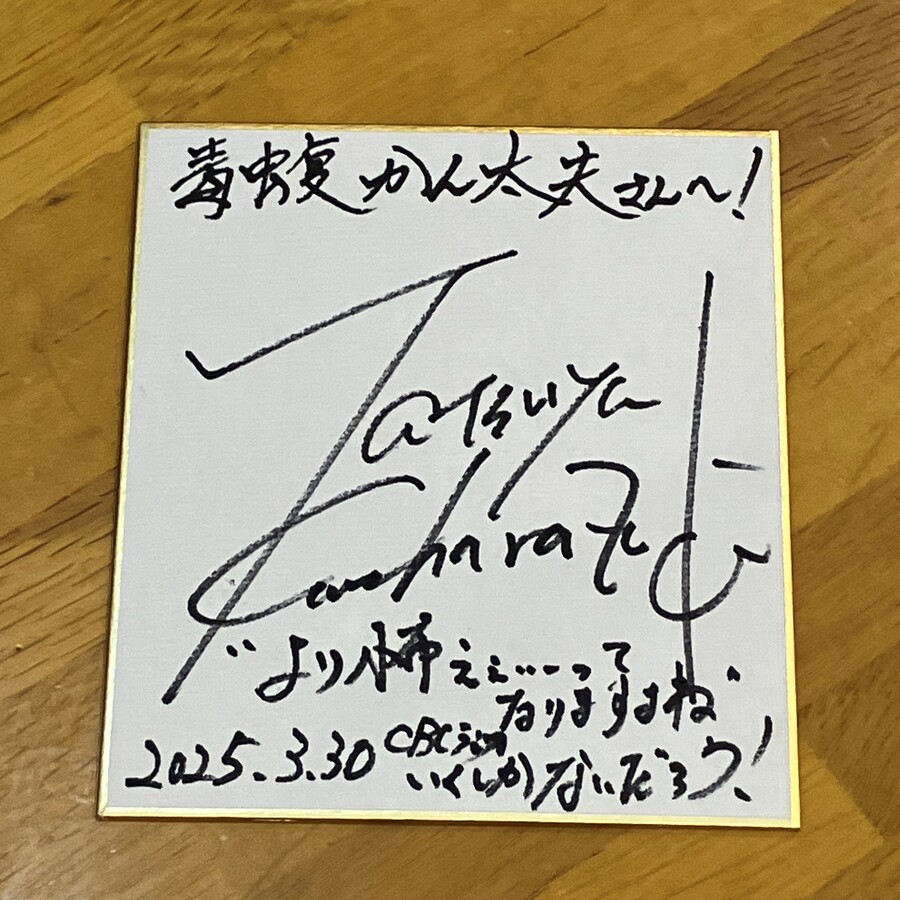 毒蝮かん太夫さんへ!
Tatsuya
Kawahara
"より怖ええ…って
なりますよね"
2025.3.30 CBCラジオ
いくしかないだろう!